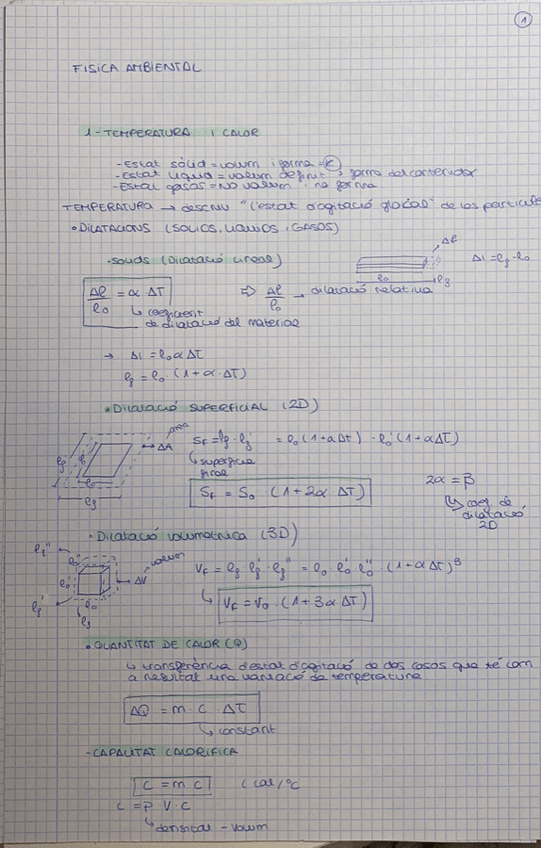 1
FISICA AMBIENTAL
1-TEMPERATURA I CALOR
-Estat sòlid = volum i forma = K
-Estat líquid = volum definit i forma del contenidor
-Estat gasos = NO volum i no forma
TEMPERATURA → descriu "l'estat d'agitació global" de les partícule
• DILATACIONS (SOLIDS, LIQUIDS I GASOS)
-SOLIDS (Dilatació lineal)
Δl
l₀ lf
Δl = lf - l₀
Δl/l₀ = α ΔT
↳ coeficient de dilatació del material
⇨ Δl/l₀ → dilatació relativa
→ Δl = l₀ α ΔT
lf = l₀ · (1+α·ΔT)
• Dilatació SUPERFICIAL (2D)
àrea
→ ΔA
lf' l₀' l₀ lf
SF = lf · lf' = l₀ (1+αΔt) · l₀' (1+αΔT)
↳ superfície final
SF = S₀ (1+2α ΔT)
2α = β
↳ coef de dilatació 2D
• Dilatació volumètrica (3D)
volum
→ ΔV
lf'' l₀'' l₀' l₀ lf' lf
VF = lf · lf' · lf'' = l₀ l₀' l₀'' · (1+αΔT)³
↳ VF = V₀ · (1+3αΔT)
• QUANTITAT DE CALOR (Q)
↳ transferència d'estat d'agitació de dos cosos que té com
a resultat una variació de temperatura
ΔQ = m · c · ΔT
↳ constant
-CAPACITAT CALORÍFICA
C = m·c cal/°C
C = ρ · V · c
↳ densitat - volum